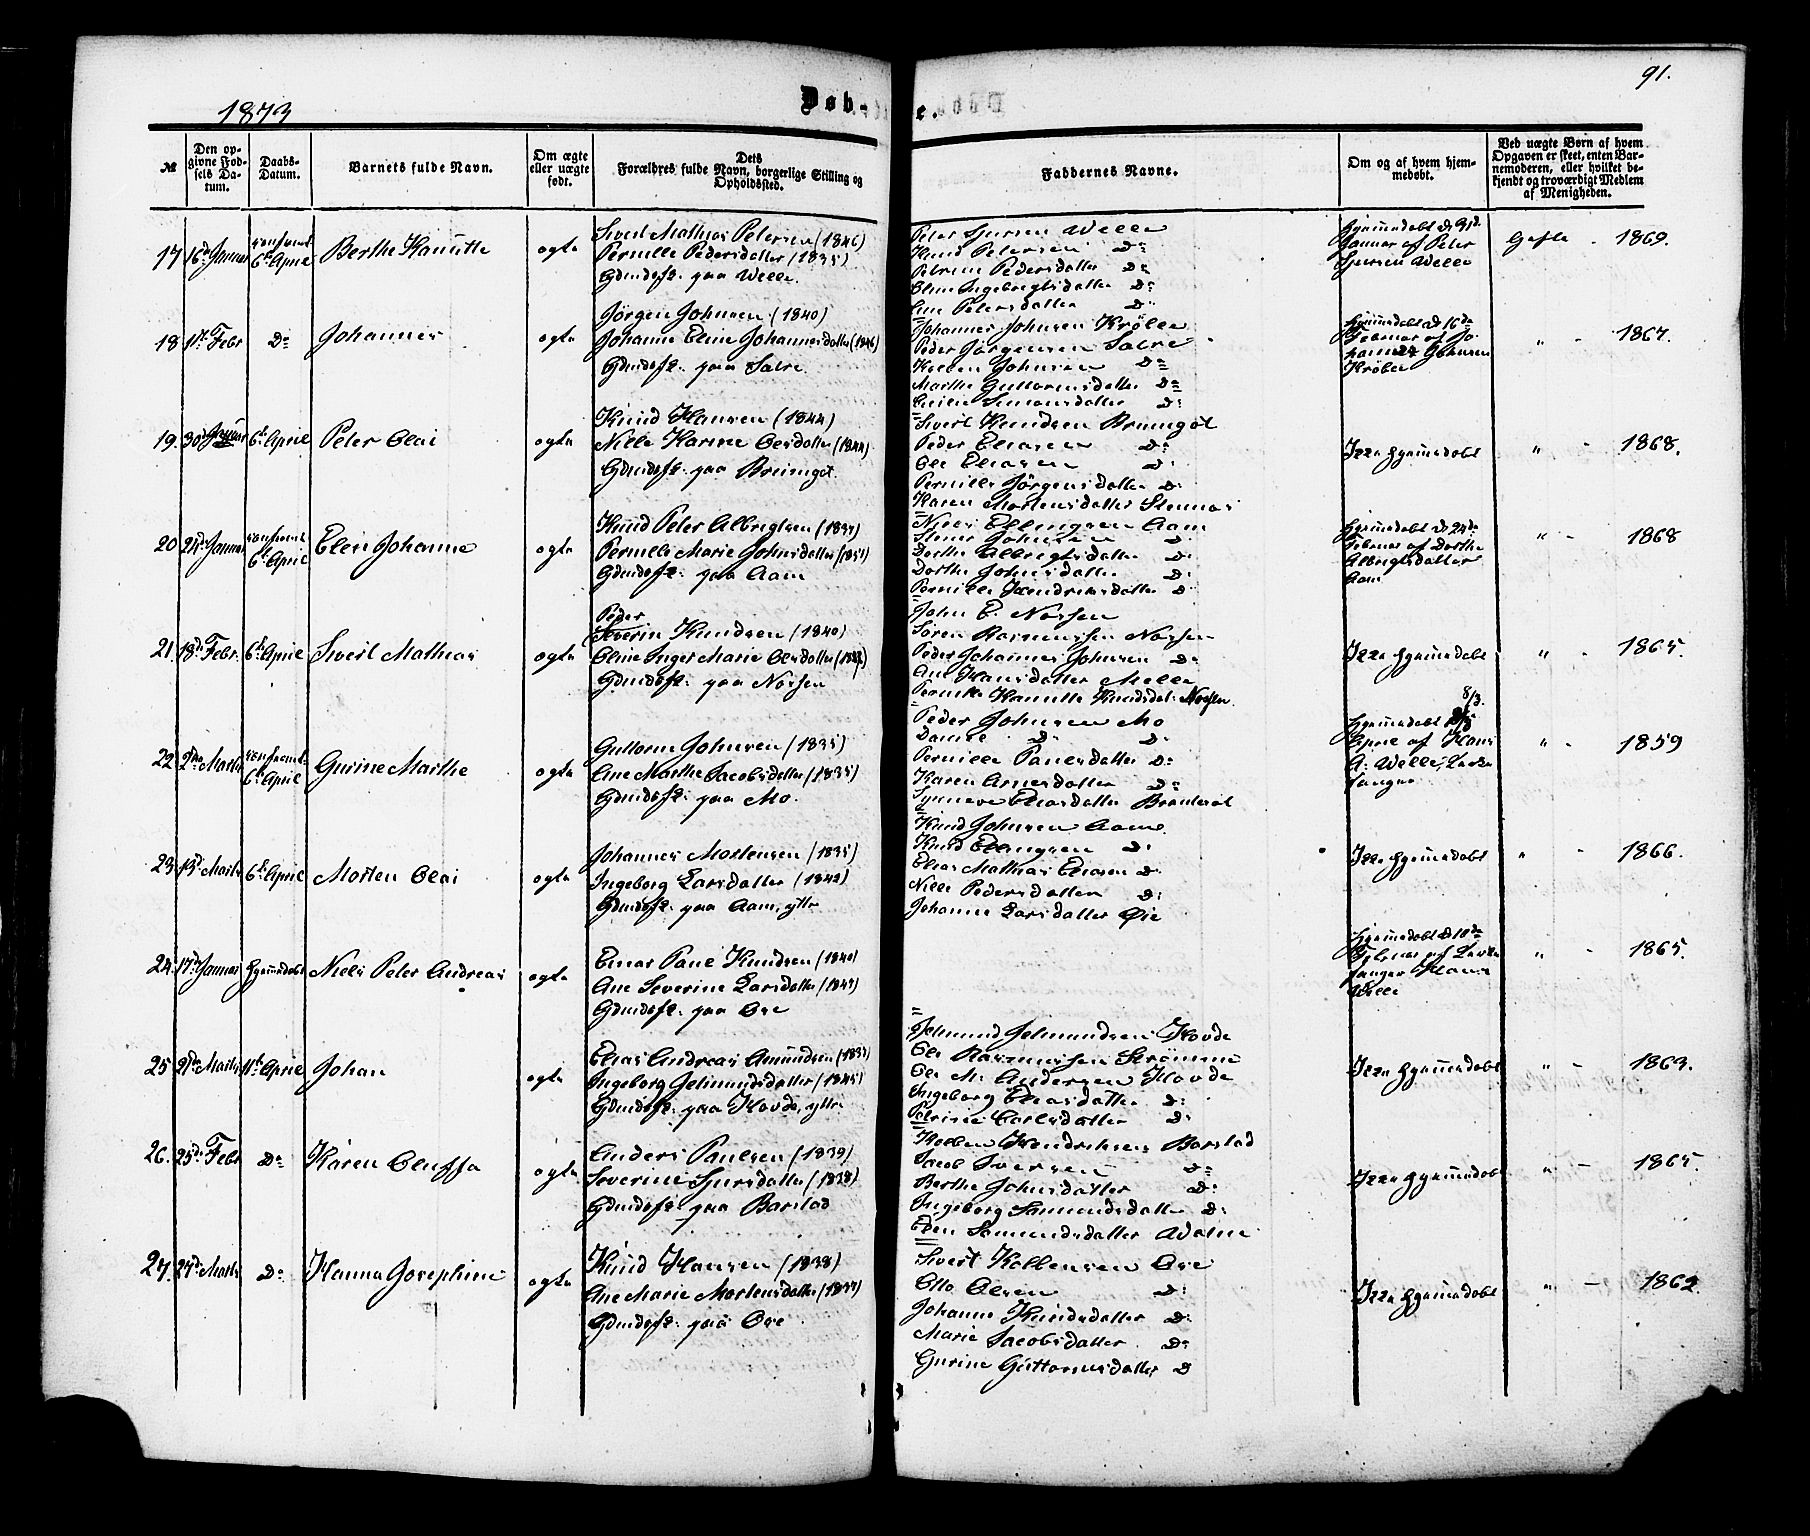 91.
1873
Døbte.
№
Den op-
givne Fød-
sels Da-
tum.
Daabs-
Datum.
Barnets fulde Navn.
Om ægte
eller uægte
født.
Dets
Forældres fulde Navn, borgerlige Stilling og
Opholdssted.
Faddernes Navne.
Om og af hvem hjem-
medøbt.
Ved uægte Børn af hvem
Opgaven er skeet, enten Bar-
nemoderen, eller hvilket be-
kjendt og troværdigt Medlem
af Menigheden.
17 16d Januar confirmt 6te April Berthe Hanutte ægte
Sivert Mathias Petersen (1846)
Pernille Pedersdatter (1835)
Gdmdsf. paa Welle.
Peter Welle
Knud Petersen Do
Petrine Pedersdatter Do
Eline Ingebrigtsdatter Do
Ane Petersdatter Do
Hjemmedøbt d.
Januar af Peter
Welle
Gifte - 1869.
18 11te Febr Do Johannes ægte
Jørgen Johnsen (1840)
Johanne Eline Johannesdatter (1846)
Gdmdsf. paa Sætre
Johannes Johnsen Krøbee
Peder Jørgensen Sætre
Kolben Johnsen Do
Marthe Guttormsdatter Do
Simonsdatter Do
Hjemmedøbt d. 16de
Februar af Jo-
hannes Johnsen
Krøbee
" - 1867.
19. 30te Januar 6te April Peter Olai ægte
Knud Hansen (1844)
Nille Karine Olesdatter (1844)
Gdmdsf. paa Brungot.
Sivert Knudsen Brungot
Peder Eliasen Do
Ole Eliasen Do
Pernille Jørgensdatter Do
Karen Mortensdatter Stennes
Ikke hjemmedøbt
" - 1868.
20 24de Januar 6te April Elen Johanne ægte
Knud Peter Albrigtsen (1837)
Pernille Marie Johnsdatter (1851)
Gdmdsf. paa Aam
Niels Ellingsen Aam
Johnsen Do
Dorthe Albrigtsdatter Do
Dorthe Johnsdatter Do
Pernille Hendriksdatter Do
Hjemmedøbt d. 24de
Februar af Dorthe
Albrigtsdatter
Aam
" - 1868
21. 18de Febr. 6te April Sivert Mathias ægte
Peder
Severin Knudsen (1840)
Eline Inger Marie Olesdatter
Gdmdsf. paa Norsen
John E. Norsen
Søren Rasmussen Norsen
Peder Johannes Johnsen Do
Ane Hansdatter Melle
Hanutte Knudsdat. Norsen
Ikke hjemmedøbt
" - 1865.
22 2den Marts 6te April Gurine Marthe ægte
Guttorm Johnsen (1835)
Ane Marthe Jacobsdatter (1835)
Gdmdsf. paa Mo.
Peder Johnsen Mo
Daniel Do Do
Pernille Paulsdatter Do
Karen Arnesdatter Do
Synneve Eliasdatter
Hjemmedøbt 8/3.
April af Hans
A. Welle, Kirke-
sanger
" - 1859
23. 13de Marts 6te April Morten Olai ægte
Johannes Mortensen (1835)
Ingeborg Larsdatter (1842)
Gdmdsf. paa Aam, ytre
Knud Johnsen Aam
Knud Ellingsen Do
Elias Mathias Eliasen Do
Nille Pedersdatter Do
Johanne Larsdatter Øie
Ikke hjemmedøbt
" - 1866.
24. 17de Januar Hjemmedøbt Niels Peter Andreas ægte
Einar Paul Knudsen (1840)
Ane Severine Larsdatter (1843)
Gdmdsf. paa Øie
Hjemmedøbt d. 10de
Februar af Kirke-
sanger Hans
Welle
" - 1865.
25. 21de Marts 11te April Johan ægte
Elias Andreas Amundsen
Ingeborg Gelmundsdatter (1845)
Gdmdsf. paa Hovde, ytre
Gelmund Gelmundsen Hovde
Ole Rasmussen Strømme
Ole M. Andersen Hovde
Ingeborg Eliasdatter Do
Petrine Carlsdatter Do
Ikke hjemmedøbt
" - 1863.
26. 25de Febr Do Karen Oluffa ægte
Anders Paulsen (1839)
Severine Sjursdatter (1838)
Gdmdsf. paa Barstad
Kolben Hendriksen Barstad
Jacob Iversen Do
Berthe Johnsdatter Do
Ingeborg Samundsdatter Do
Elen Samundsdatter
Ikke hjemmedøbt
" - 1865.
27. 27de Marts Do Hanna Josephine ægte
Knud Hansen (1838)
Ane Marie Mortensdatter (1837)
Gdmdsf. paa Øie
Sivert Kolbensen Øie
Otto Olsen Do
Johanne Knudsdatter Do
Marie Jacobsdatter Do
Gurine Guttormsdatter Do
Ikke hjemmedøbt
" - 1862